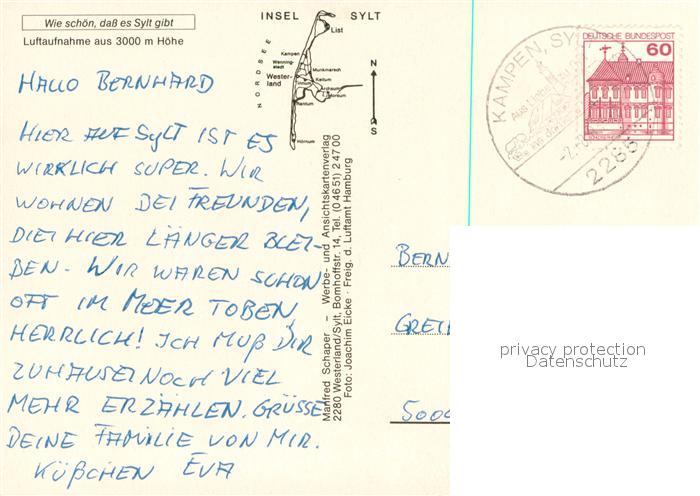 Wie schön, daß es Sylt gibt
Luftaufnahme aus 3000 m Höhe
INSEL SYLT
NORDSEE
List
Kampen
Wenning-
stedt
Wester-
land
Munkmarsch
Keitum
Archsum
Morsum
Rantum
Hörnum
N
S
HALLO BERNHARD
HIER AUF SYLT IST ES
WIRKLICH SUPER. WIR
WOHNEN BEI FREUNDEN,
DIE HIER LÄNGER BLEI-
BEN. WIR WAREN SCHON
OFT IM MEER TOBEN,
HERRLICH! ICH MUß DIR
ZUHAUSE NOCH VIEL
MEHR ERZÄHLEN. GRÜSSE
DEINE FAMILIE VON MIR.
KÜßCHEN EVA
Manfred Schaper – Werbe- und Ansichtskartenverlag
2280 Westerland/Sylt, Bomhoffstr. 14, Tel. (0 46 51) 2 47 00
Foto: Joachim Eicke · Freig. d. Luftamt Hamburg
KAMPEN, SY
2285
DEUTSCHE BUNDESPOST
60
BERN
GREI
5000
privacy protection
Datenschutz